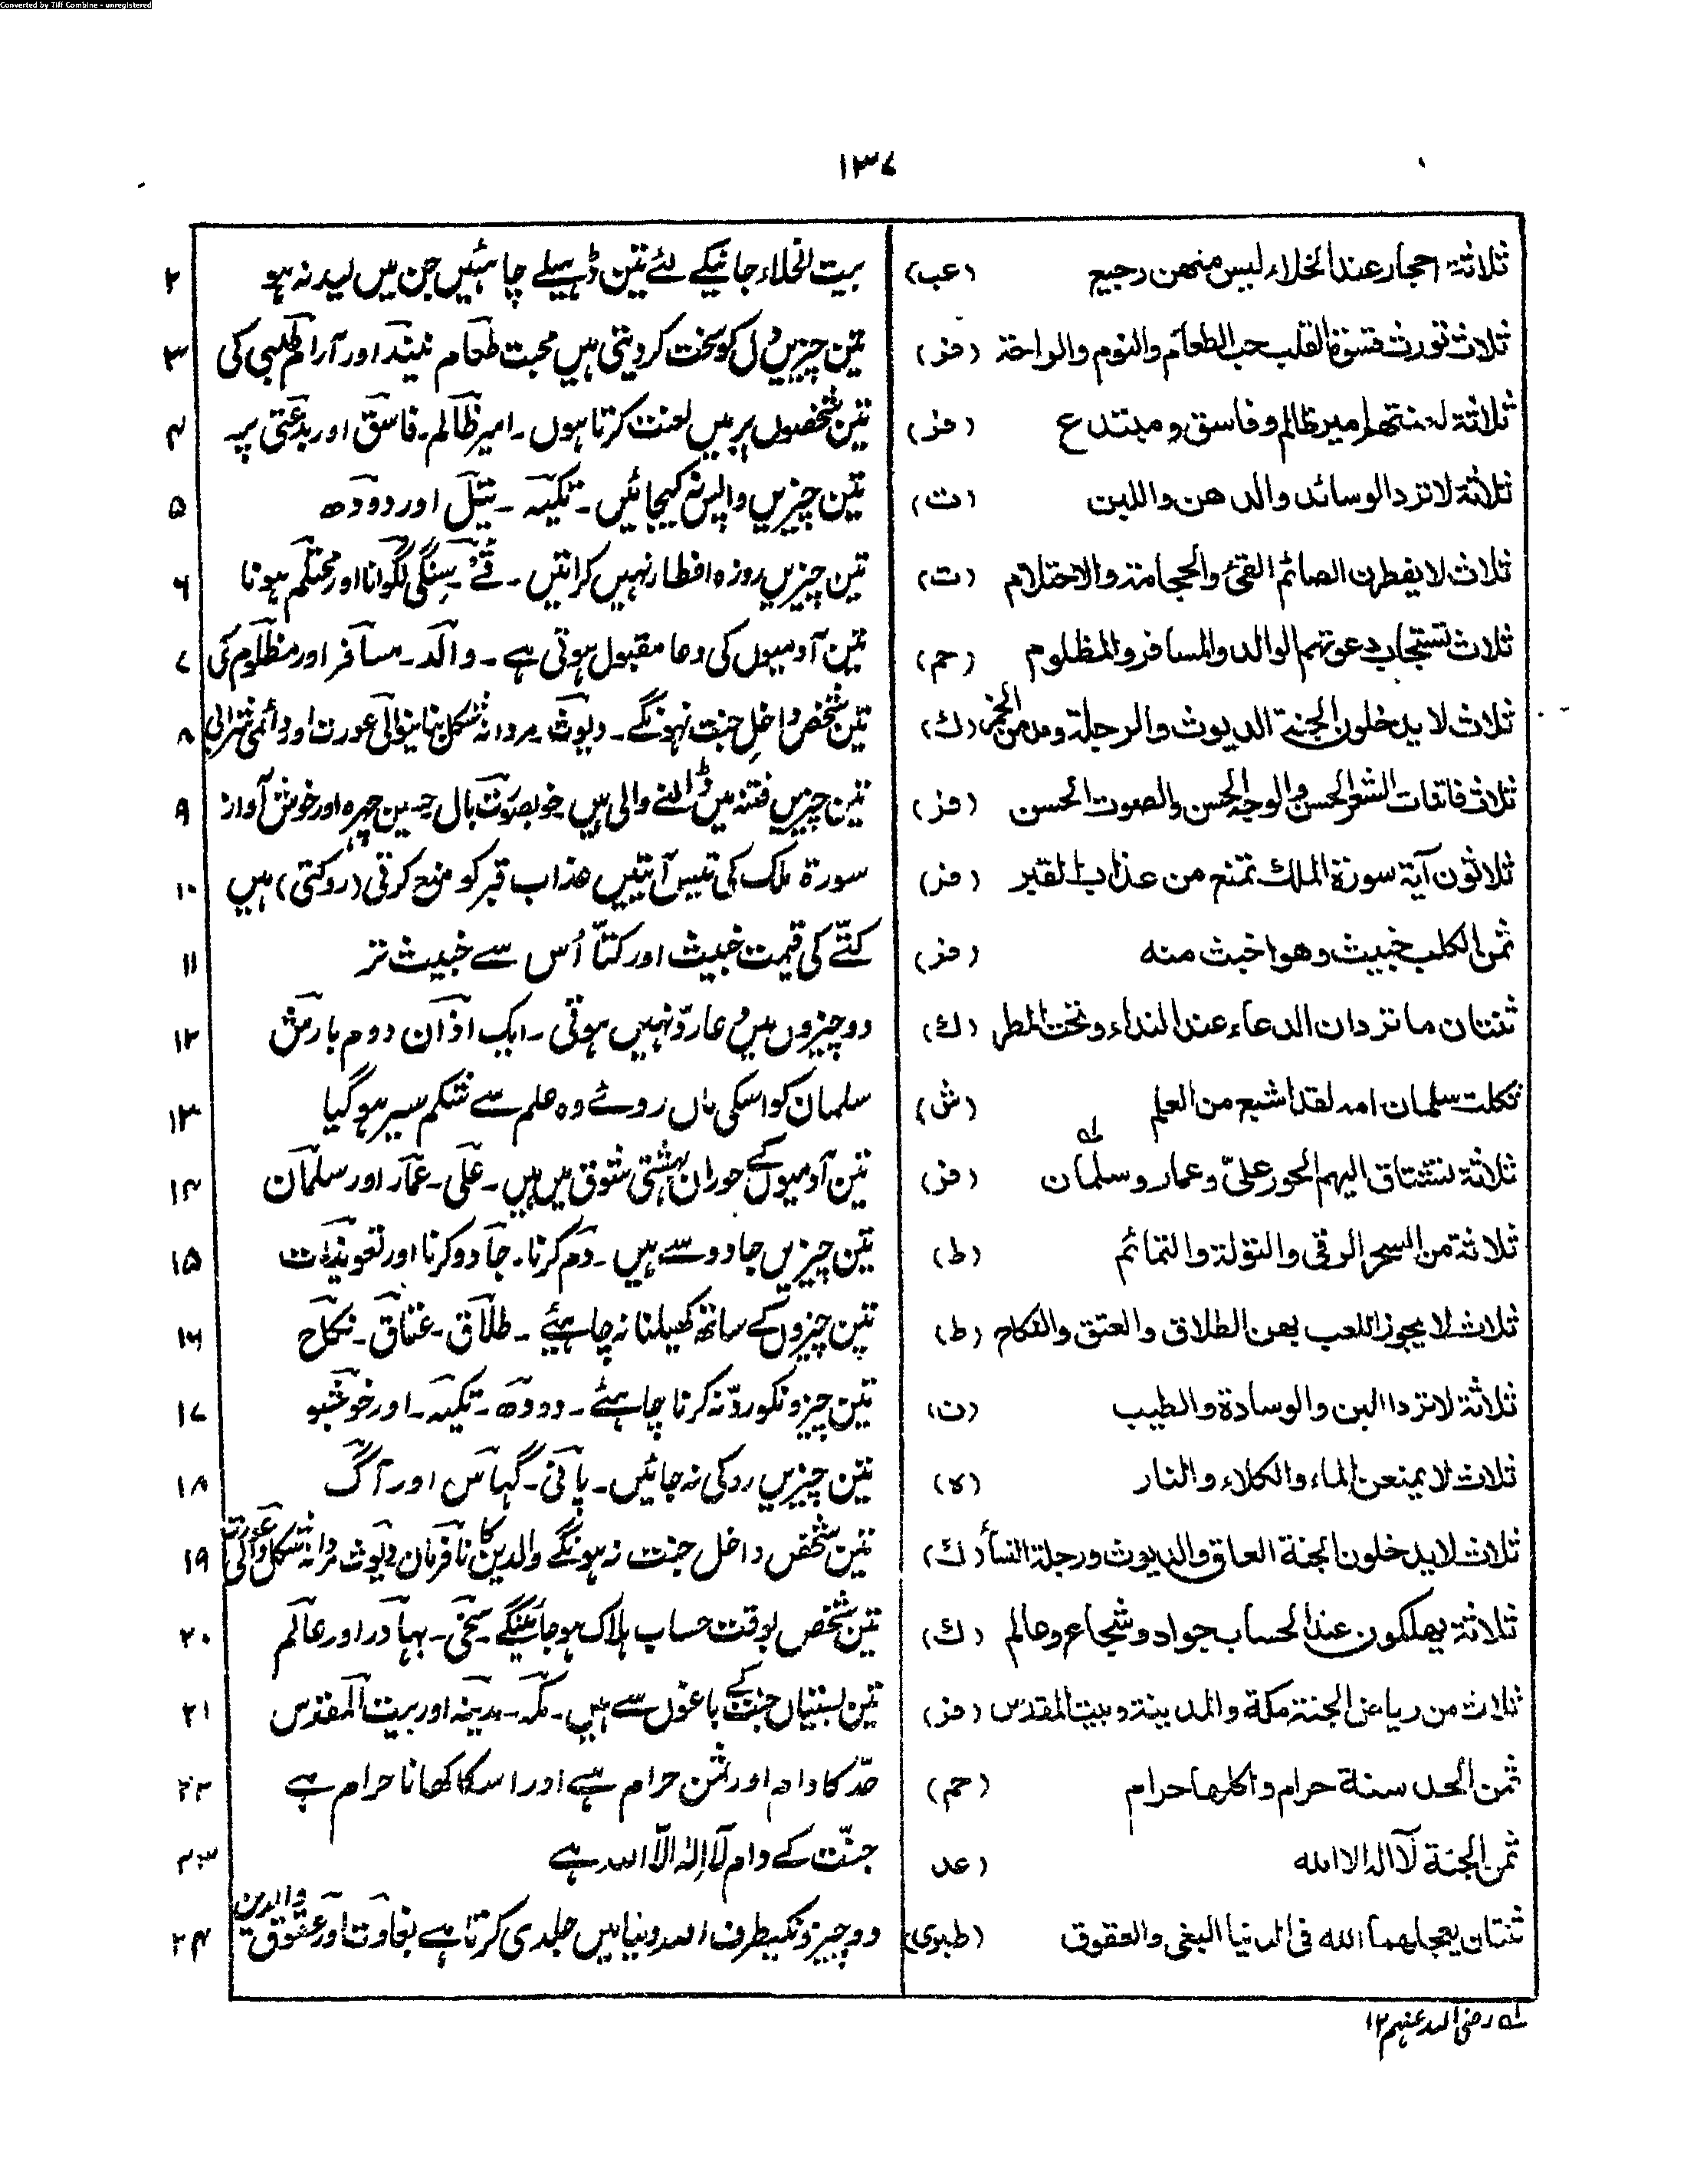 Converted by Tiff Combine - unregistered
۱۳۷
ثلاثة احجار عند الخلاء ليس منهن رجيع (عب) بیت الخلاء جانیکے لئے تین ڈہیلے چاہئیں جن میں لید نہ ہو ۲
ثلاث تورث قسوة القلب حب الطعام والنوم والراحة (فر) تین چیزیں دل کو سخت کر دیتی ہیں محبت طعام نیند اور آرام طلبی کی ۳
ثلاثة لعنتهم امير ظالم و فاسق و مبتدع (فر) تین شخصوں پر میں لعنت کرتا ہوں ۔ امیر ظالم ۔ فاسق اور بدعتی پر ۴
ثلاثة لا ترد الوسائد والدهن واللبن (ت) تین چیزیں واپس نہ کیجائیں ۔ تکیہ ۔ تیل اور دودھ ۵
ثلاث لا يفطرن الصائم القئ والحجامة والاحتلام (ت) تین چیزیں روزہ افطار نہیں کراتیں ۔ قے ۔ سنگی لگوانا اور محتلم ہونا ۶
ثلاث تستجاب دعوتهم الوالد والمسافر والمظلوم (حم) تین آدمیوں کی دعا مقبول ہوتی ہے ۔ والد ۔ مسافر اور مظلوم کی ۷
ثلاث لا يدخلون الجنة الديوث والرجلة ومدمن الخمر (ك) تین شخص داخل جنت نہونگے ۔ دیوث ۔ مردانہ شکل بنانیوالی عورت اور دائمی شرابی ۸
ثلاث فاتنات الشعر الحسن والوجه الحسن والصوت الحسن (فر) تین چیزیں فتنہ میں ڈالنے والی ہیں خوبصورت بال حسین چہرہ اور خوش آواز ۹
ثلاثون آية سورة الملك تمنع من عذاب القبر (فر) سورة ملک کی تیس آیتیں عذاب قبر کو منع کرتی (روکتی) ہیں ۱۰
ثمن الكلب خبيث وهو اخبث منه (فر) کتّے کی قیمت خبیث اور کتّا اُس سے خبیث تر ۱۱
ثنتان ما تردان الدعاء عند النداء وتحت المطر (ك) دو چیزوں میں دعا ردّ نہیں ہوتی ۔ ایک اذان دوم بارش ۱۲
ثكلت سلمان امه لقد اشبع من العلم (ش) سلمان کو اسکی ماں روئے وہ علم سے شکم سیر ہو گیا ۱۳
ثلاثة تشتاق اليهم الحور علىّ وعمار وسلمان له (فر) تین آدمیوں کے حوران بہشتی شوق میں ہیں ۔ علی ۔ عمار اور سلمان ۱۴
ثلاثة من السحر الرقى والتولة والتمائم (ط) تین چیزیں جادو سے ہیں ۔ دم کرنا ۔ جادو کرنا اور تعویذات ۱۵
ثلاث لا يجوز اللعب بهن الطلاق والعتق والنكاح (ط) تین چیزوں کے ساتھ کھیلنا نہ چاہیئے ۔ طلاق ۔ عتاق ۔ نکاح ۱۶
ثلاثة لا ترد اللبن والوسادة والطيب (ن) تین چیزونکو ردّ نہ کرنا چاہئے ۔ دودھ ۔ تکیہ ۔ اور خوشبو ۱۷
ثلاث لا يمنعن الماء والكلاء والنار (ه) تین چیزیں روکی نہ جائیں ۔ پانی ۔ گہاس اور آگ ۱۸
ثلاث لا يدخلون الجنة العاق والديوث ورجلة النسأ (ك) تین شخص داخل جنت نہ ہونگے والدین کا نافرمان دیوث مردانہ شکل والی عورت ۱۹
ثلاثة يهلكون عند الحساب جواد وشجاع وعالم (ك) تین شخص بوقت حساب ہلاک ہو جائینگے سخی ۔ بہادر اور عالم ۲۰
ثلاث من رياض الجنة مكة والمدينة وبيت المقدس (فر) تین بستیاں جنت کے باغوں سے ہیں ۔ مکہ ۔ مدینہ اور بیت المقدس ۲۱
ثمن الحد سنة حرام واكلها حرام (حم) حدّ کا دام اور ثمن حرام ہے اور اسکا کھانا حرام ہے ۲۲
ثمن الجنة لآ اله الا الله (عد جنّت کے دام لا الٰہ الّا اللہ ہے ۲۳
ثنتان يعجلهما الله فى الدنيا البغى والعقوق (طبوی) دو چیزونکیطرف اللہ دنیا میں جلدی کرتا ہے بغاوت اور عقوق والدین ۲۴
له رضی اللہ عنہم ۱۲